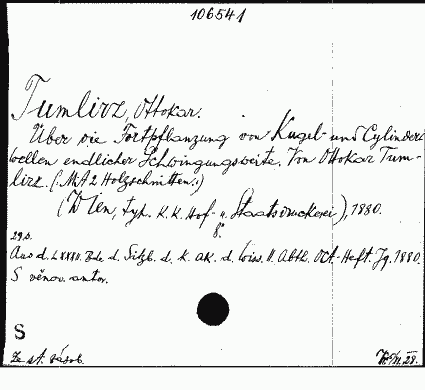 106541
Tumlirz, Ottokar.
Über die Fortpflanzung von Kugel- und Cylinder-
wellen endlicher Schwingungsweite. Von Ottokar Tum-
lirz. (: Mit 2 Holzschnitten.:)
(Wien, typ. K. K. Hof- u. Staatsdruckerei), 1880.
8°.
29 s.
Aus d. LXXXII. Bde d. Sitzb. d. k. ak. d. Wiss. II. Abth. Oct.-Heft. Jg. 1880.
S věnov. autor.
S
Ze st. zásob.